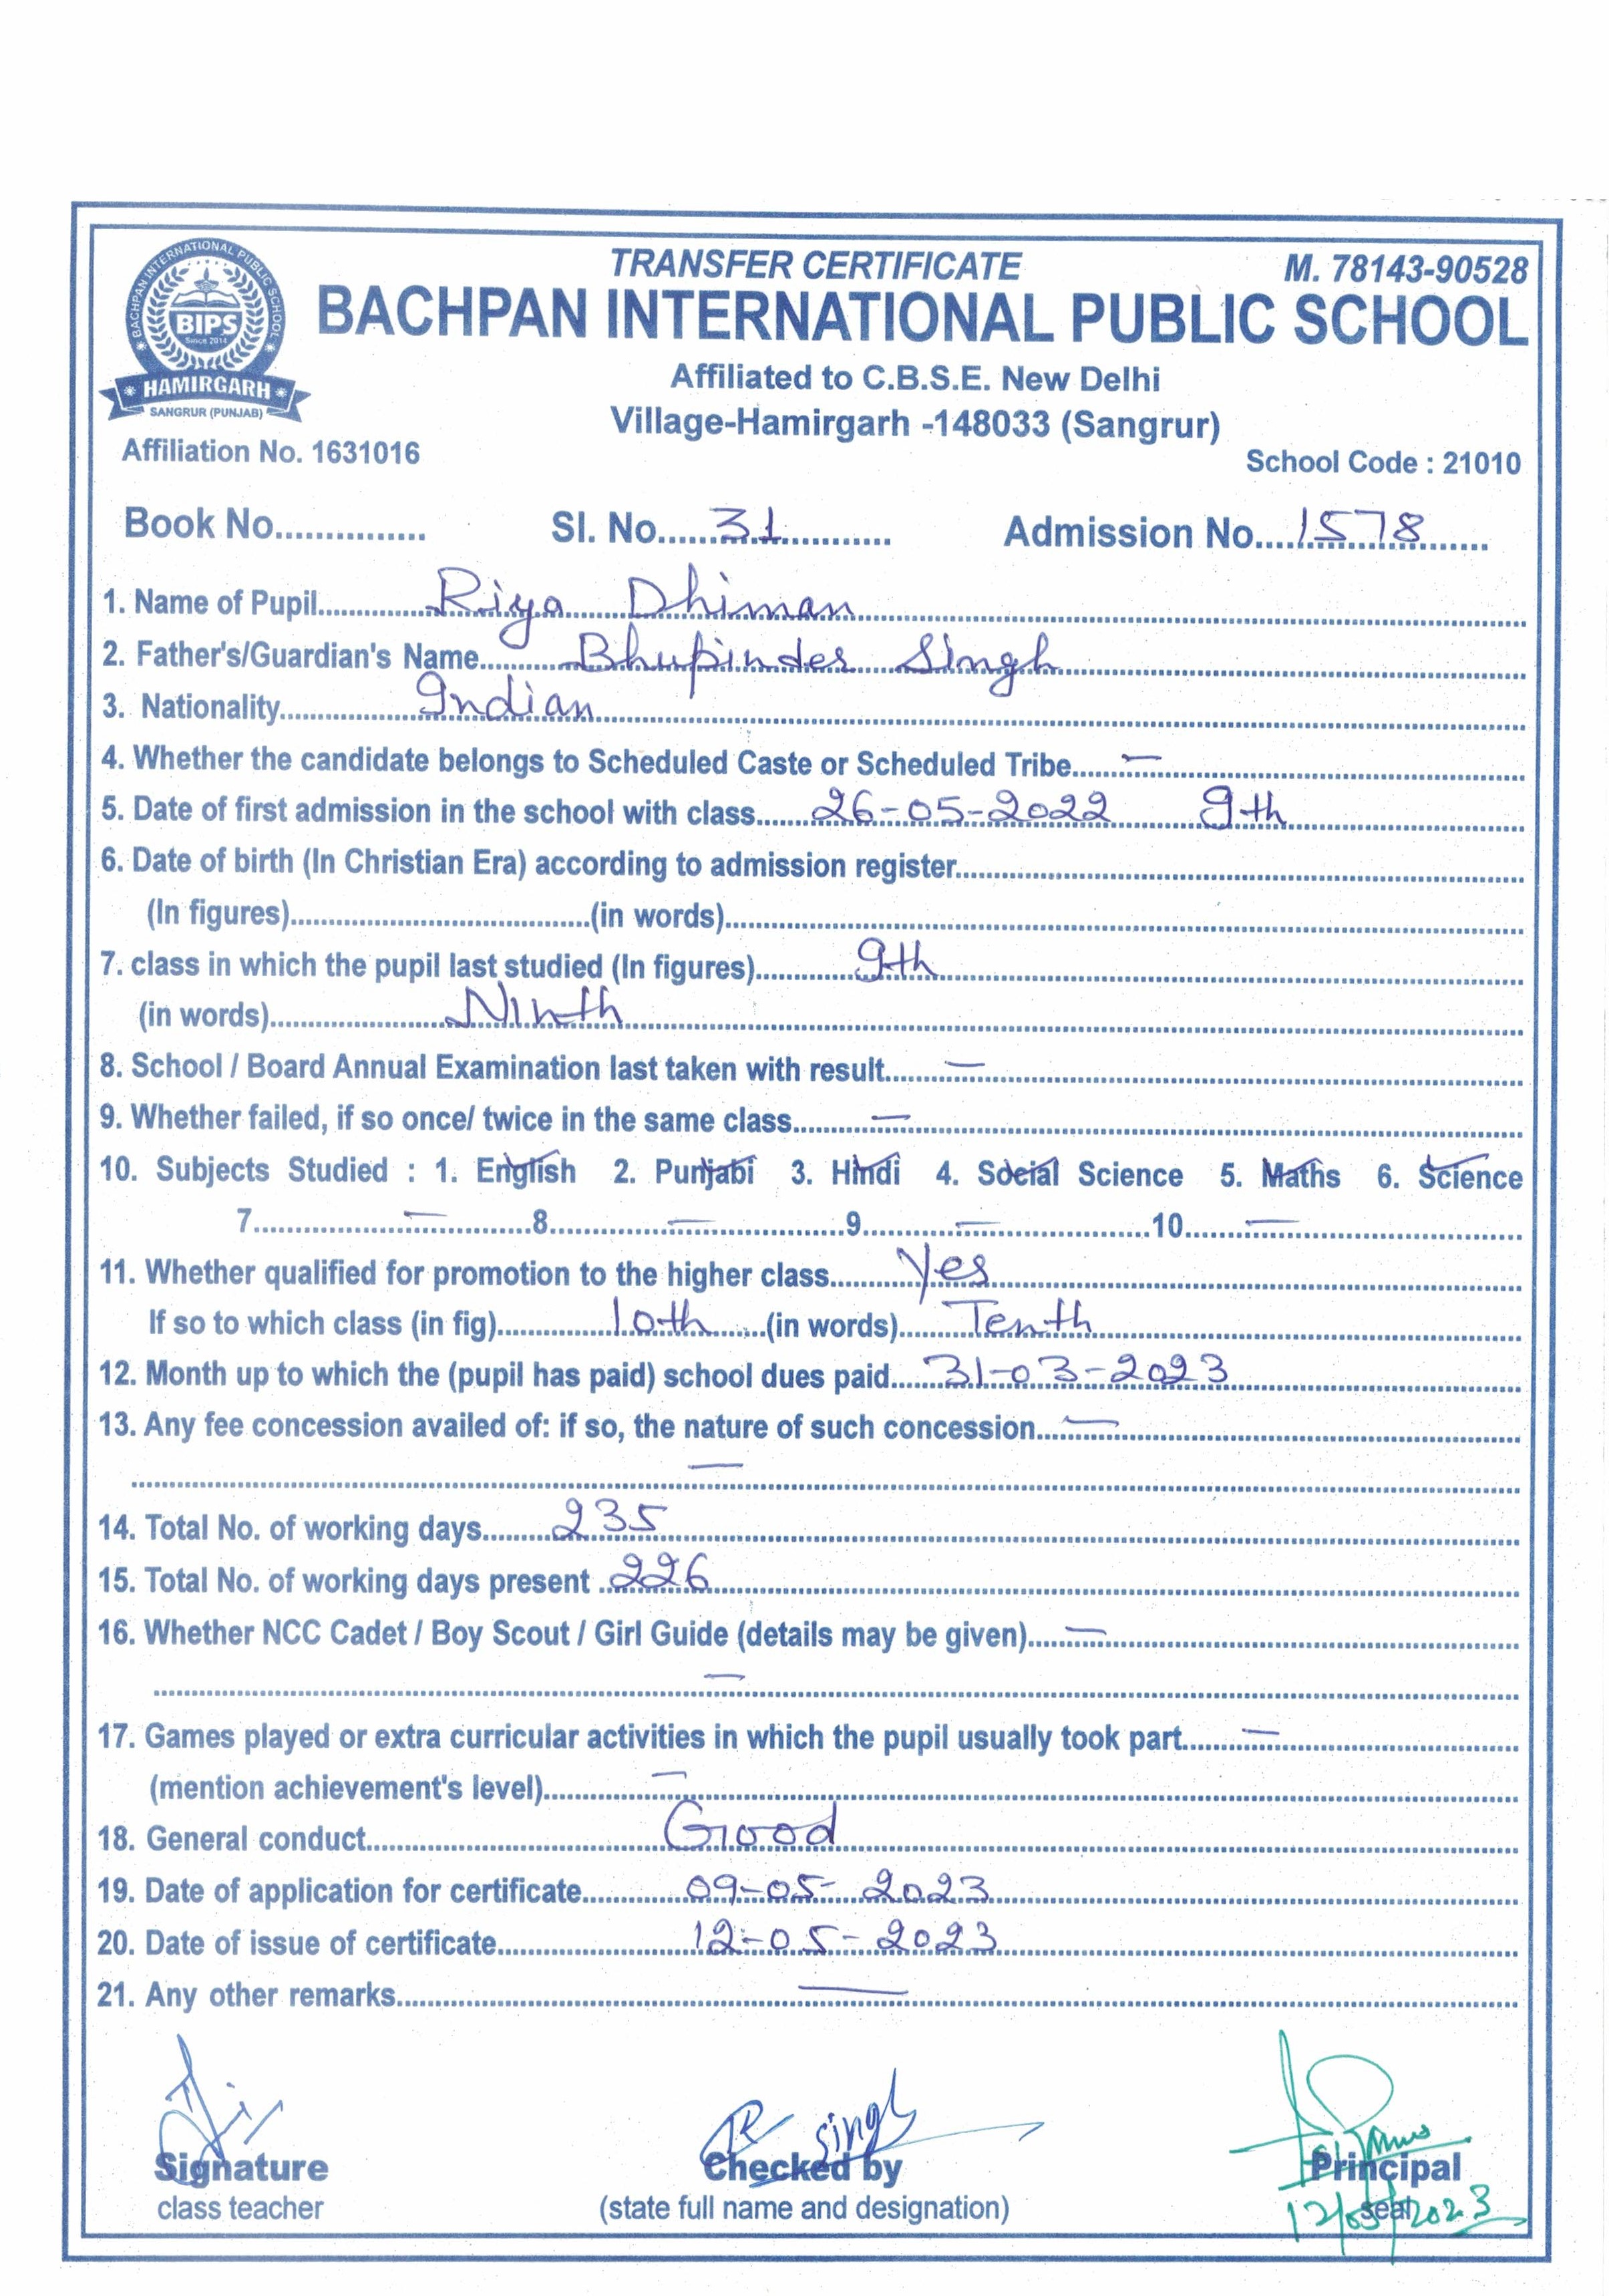 BACHPAN INTERNATIONAL PUBLIC SCHOOL
BIPS
Since 2014
HAMIRGARH
SANGRUR (PUNJAB)
TRANSFER CERTIFICATE M. 78143-90528
BACHPAN INTERNATIONAL PUBLIC SCHOOL
Affiliated to C.B.S.E. New Delhi
Village-Hamirgarh -148033 (Sangrur)
Affiliation No. 1631016 School Code : 21010
Book No............... Sl. No......31........... Admission No....1578.......
1. Name of Pupil............Riya Dhiman............
2. Father's/Guardian's Name..........Bhupinder Singh............
3. Nationality..............Indian............
4. Whether the candidate belongs to Scheduled Caste or Scheduled Tribe......—............
5. Date of first admission in the school with class......26-05-2022 9th............
6. Date of birth (In Christian Era) according to admission register............
(In figures)............(in words)............
7. class in which the pupil last studied (In figures)............9th............
(in words)............Ninth............
8. School / Board Annual Examination last taken with result......—............
9. Whether failed, if so once/ twice in the same class.........—............
10. Subjects Studied : 1. English 2. Punjabi 3. Hindi 4. Social Science 5. Maths 6. Science
7............—............8............—............9............—............10......—............
11. Whether qualified for promotion to the higher class.........Yes............
If so to which class (in fig)............10th......(in words).........Tenth............
12. Month up to which the (pupil has paid) school dues paid......31-03-2023............
13. Any fee concession availed of: if so, the nature of such concession....—............
............—............
14. Total No. of working days.........235............
15. Total No. of working days present ..226............
16. Whether NCC Cadet / Boy Scout / Girl Guide (details may be given).....—............
............—............
17. Games played or extra curricular activities in which the pupil usually took part......—............
(mention achievement's level)............—............
18. General conduct............Good............
19. Date of application for certificate............09-05-2023............
20. Date of issue of certificate............12-05-2023............
21. Any other remarks............—............
Singh
Signature Checked by Principal
class teacher (state full name and designation) seal
12/05/2023